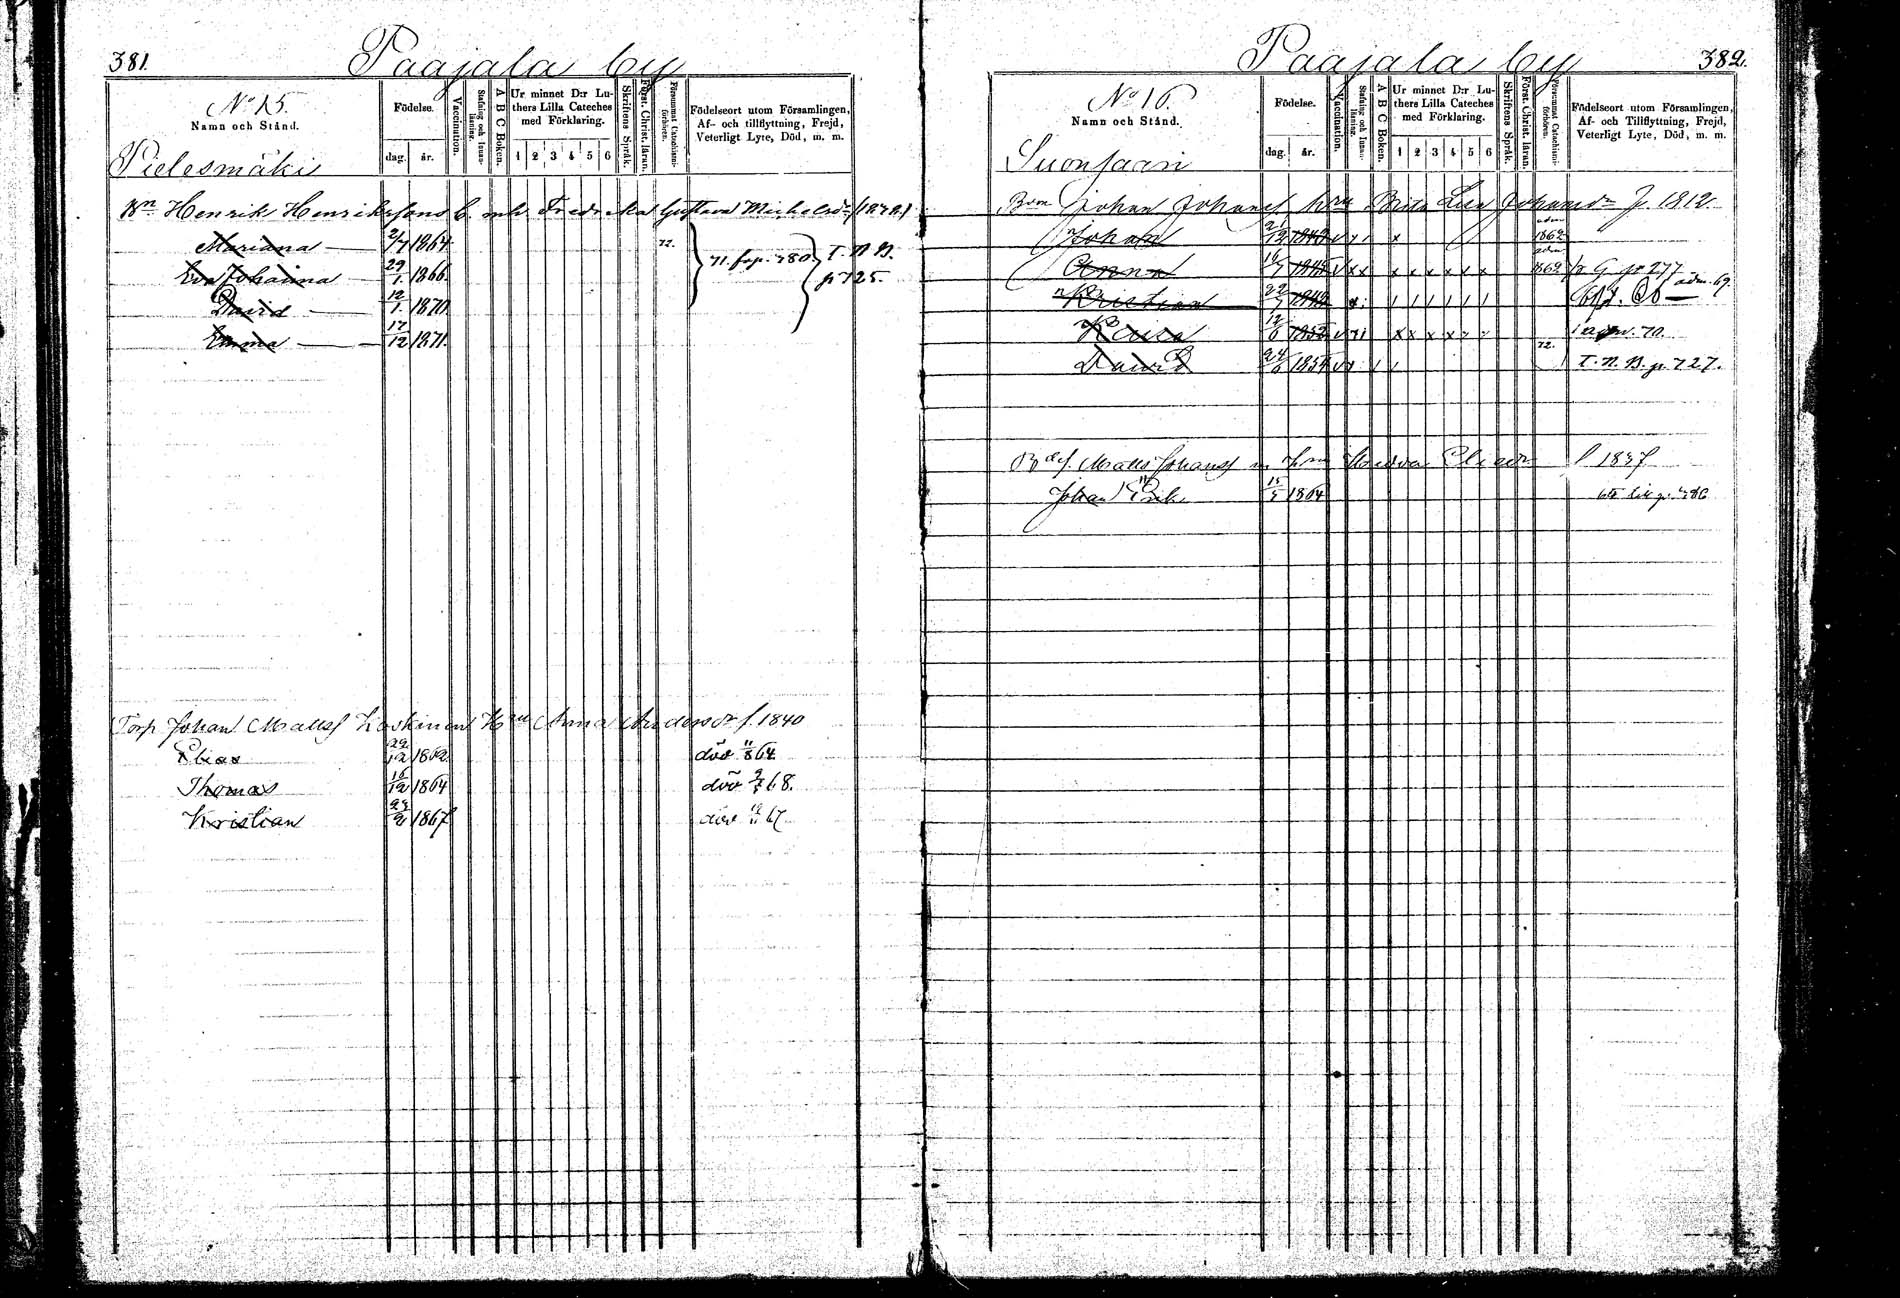 381.
Paajala by
No 15.
Namn och Stånd.
Födelse.
dag. år.
Vaccination.
Stafning och Innanläsning.
A B C Boken.
Ur minnet D:r Luthers Lilla Cateches med Förklaring.
1 2 3 4 5 6
Skriftens Språk.
Först. Christ. läran.
Försummat Catechismiförhören.
Födelseort utom Församlingen, Af- och tillflyttning, Frejd, Veterligt Lyte, Död, m. m.
Pielesmäki
Bn Henrik Henriksons b. mh. Fredrika Gustava Michelsdr (1838)
Mariana 2/7 1864 72.
Eva Johanna 29/1 1866 71. frp. 780. T. N. B.
David 12/1 1870. p 725.
Emma 17/12 1871.
Torp Johan Matts Koskinen Hru Anna Andersdr f. 1840
Elias 22/12 1862 död 11/8 64
Thomas 16/12 1864 död 68.
Kristian 1867 död 67.
382.
Paajala by
No 16.
Namn och Stånd.
Födelse.
dag. år.
Vaccination.
Stafning och Innanläsning.
A B C Boken.
Ur minnet D:r Luthers Lilla Cateches med Förklaring.
1 2 3 4 5 6
Skriftens Språk.
Först. Christ. läran.
Försummat Catechismiförhören.
Födelseort utom Församlingen, Af- och Tillflyttning, Frejd, Veterligt Lyte, Död, m. m.
Suonsaari
Bon Johan Johans hru Brita Lisa Johansdr f. 1812
Johan 21/12 1840 adm 1862
Anna 16/7 1845 adm 1862 p. 277
Kristian 22/7 1848 adm. 69.
12/6 1852 adm. 70.
David 24/6 1854 72. T. N. B. p. 727.
Matts Johans m hru Hedva Eliedr f 1837
Johan Erik 15/5 1864 till p. 786